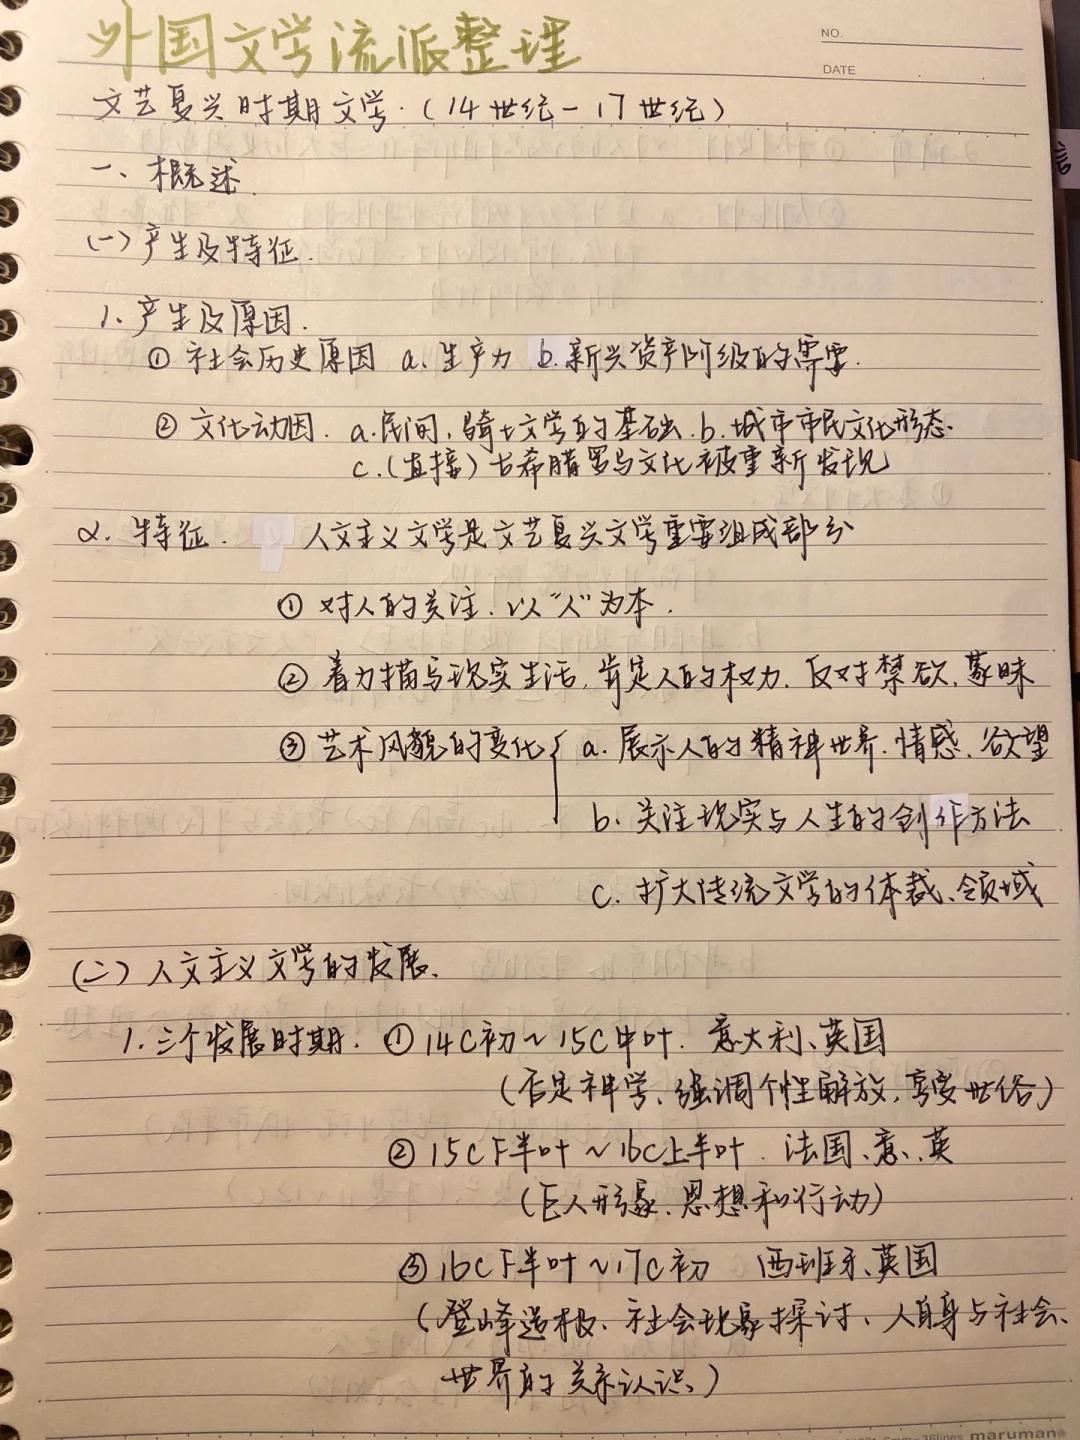 外国文学流派整理
NO.
DATE
文艺复兴时期文学.(14世纪－17世纪)
一、概述.
(一)产生及特征.
1.产生及原因.
①社会历史原因 a.生产力 b.新兴资产阶级的需要.
②文化动因. a.民间,骑士文学的基础.b.城市市民文化形态.
c.(直接)古希腊罗马文化被重新发现
2.特征. 人文主义文学是文艺复兴文学重要组成部分
①对人的关注.以"人"为本.
②着力描写现实生活,肯定人的权力.反对禁欲、蒙昧
③艺术风貌的变化{ a.展示人的精神世界.情感、欲望
b.关注现实与人生的创作方法
c.扩大传统文学的体裁、领域
(二)人文主义文学的发展、
1.三个发展时期.①14C初~15C中叶. 意大利、英国
(否定神学、强调个性解放,享受世俗)
②15C下半叶~16C上半叶. 法国、意、英
(巨人形象.思想和行动)
③16C下半叶~17C初 西班牙、英国
(登峰造极、社会现象探讨、人自身与社会、
世界的关系认识、)
maruman